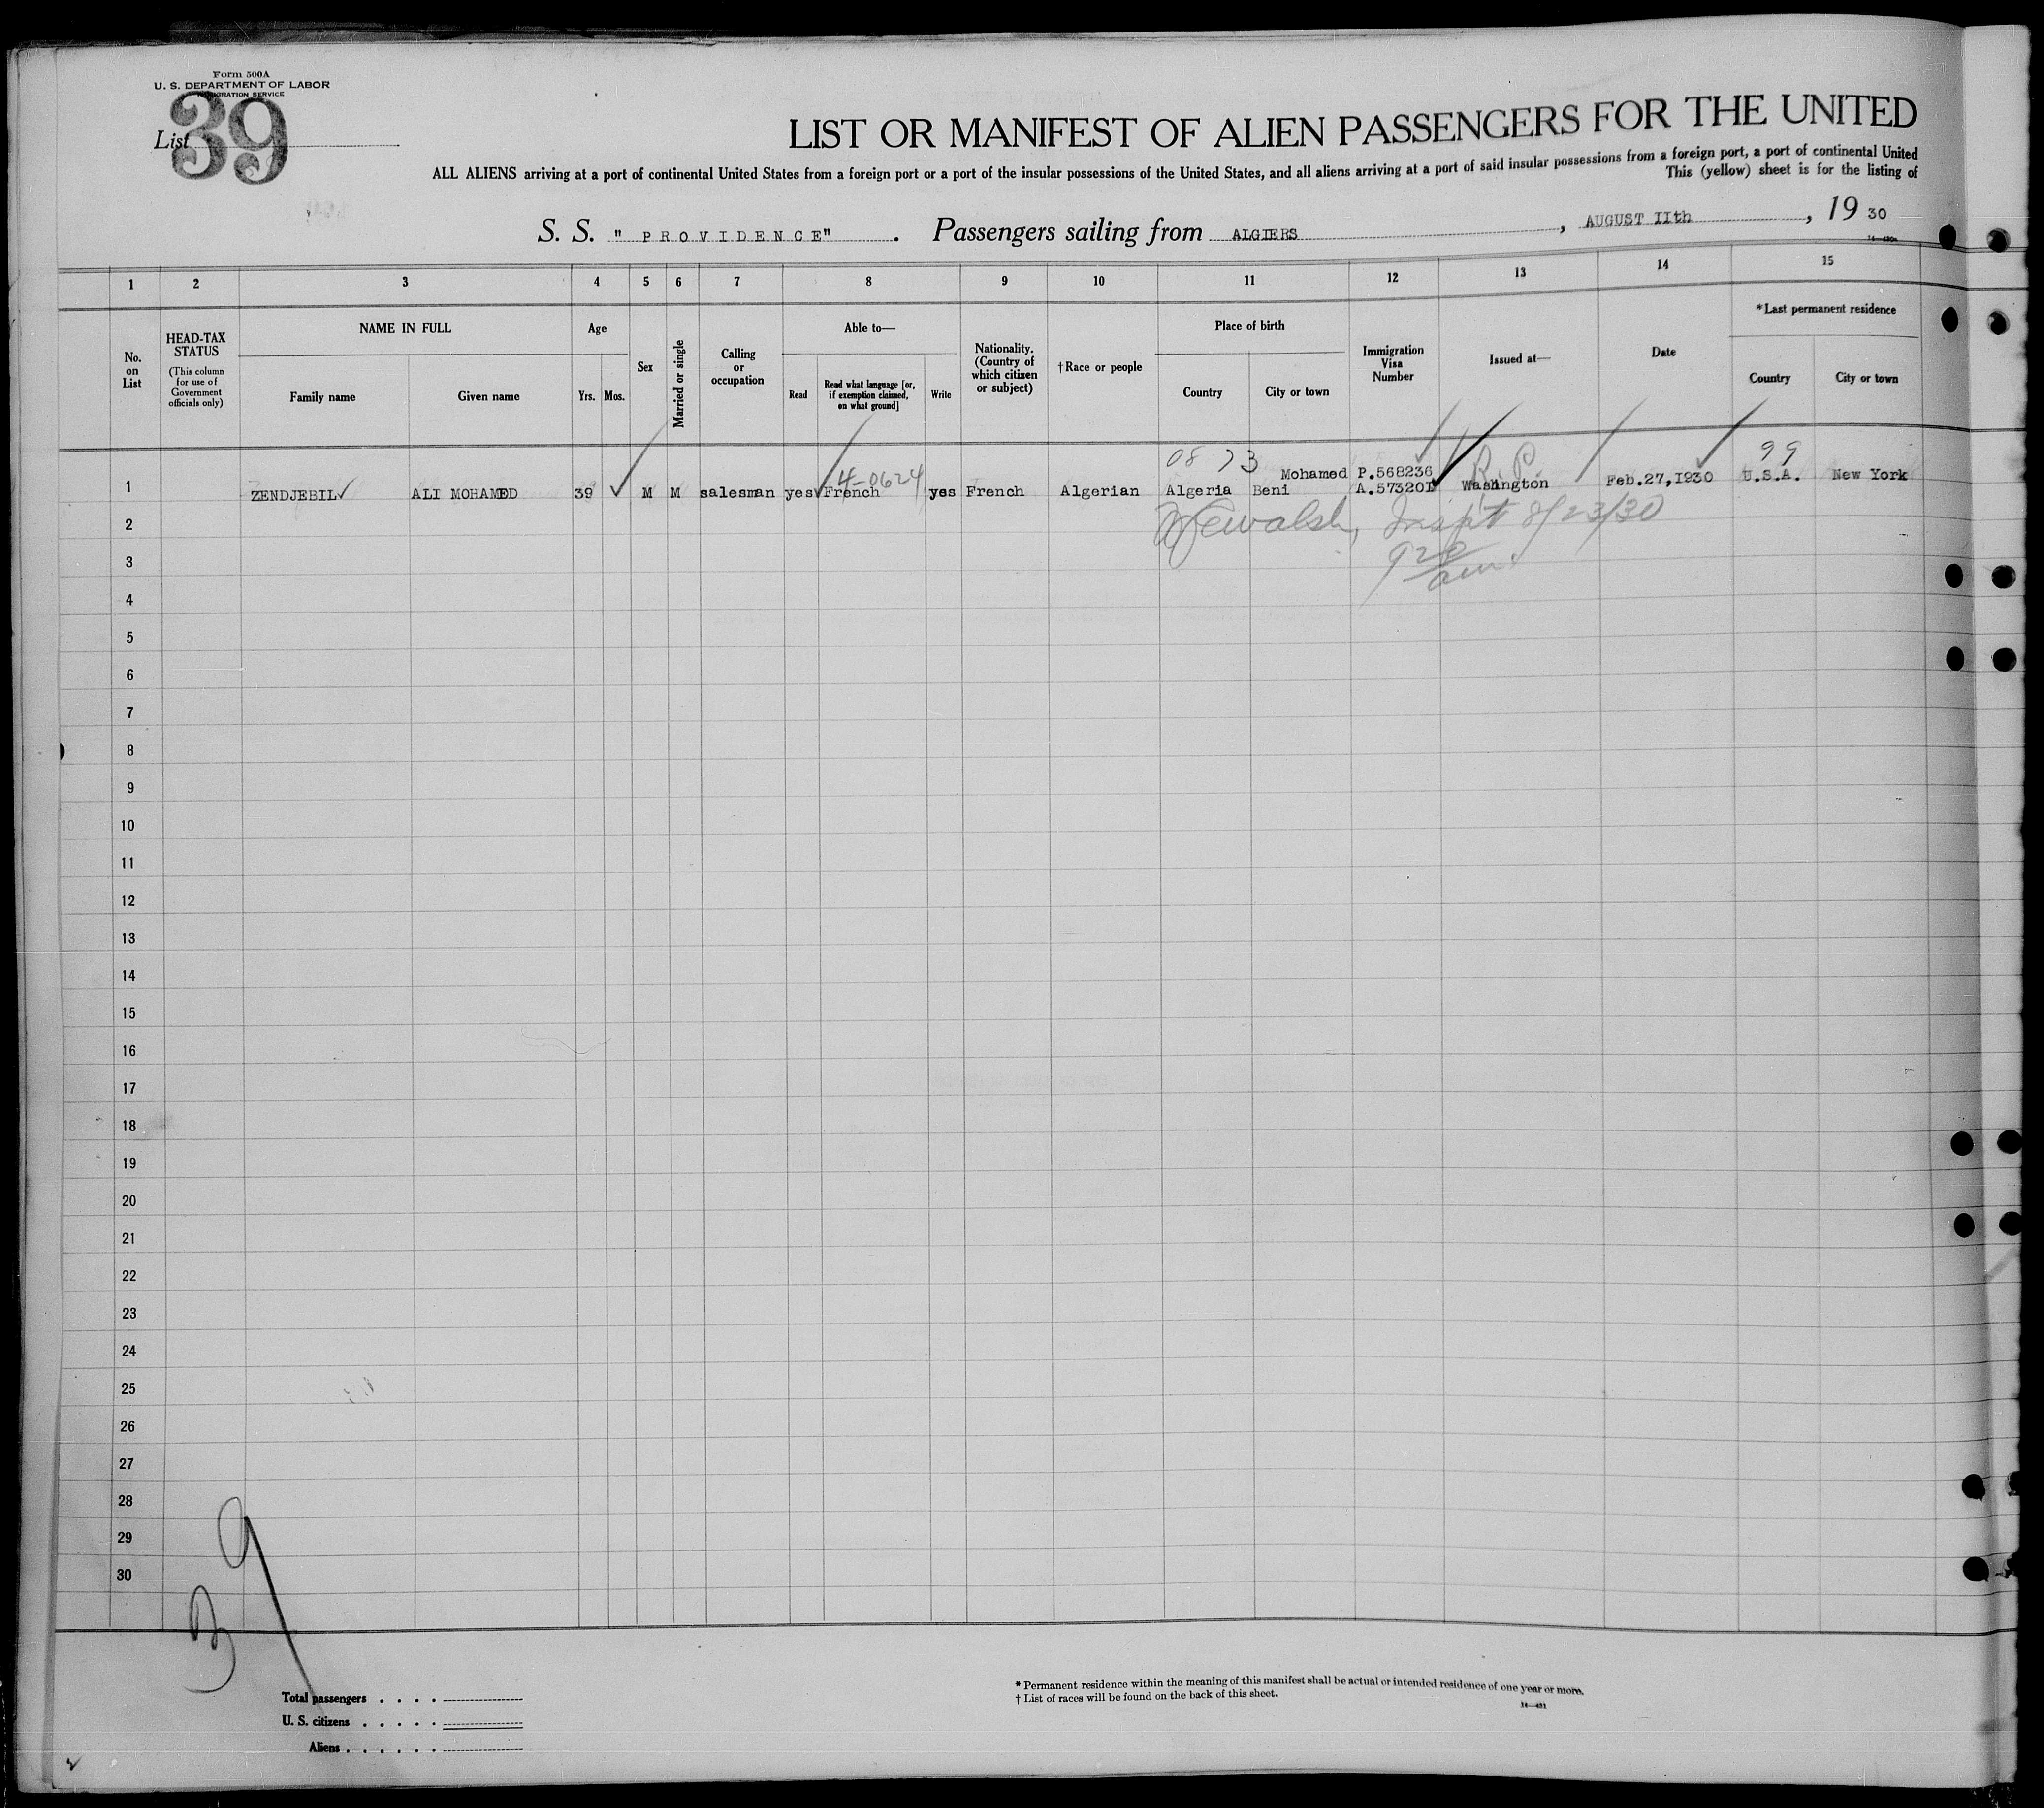 Form 500A
U. S. DEPARTMENT OF LABOR
IMMIGRATION SERVICE
List 39
LIST OR MANIFEST OF ALIEN PASSENGERS FOR THE UNITED
ALL ALIENS arriving at a port of continental United States from a foreign port or a port of the insular possessions of the United States, and all aliens arriving at a port of said insular possessions from a foreign port, a port of continental United
This (yellow) sheet is for the listing of
S. S. "PROVIDENCE". Passengers sailing from ALGIERS, AUGUST IIth, 19 30
1 2 3 4 5 6 7 8 9 10 11 12 13 14 15
No. on List
HEAD-TAX STATUS
(This column for use of Government officials only)
NAME IN FULL
Family name Given name
Age
Yrs. Mos.
Sex
Married or single
Calling or occupation
Able to—
Read
Read what language [or, if exemption claimed, on what ground]
Write
Nationality. (Country of which citizen or subject)
†Race or people
Place of birth
Country City or town
Immigration Visa Number
Issued at—
Date
*Last permanent residence
Country City or town
4-0624 08 73 R.P. 99
Mohamed P.568236
1 ZENDJEBIL ALI MOHAMED 39 M M salesman yes French yes French Algerian Algeria Beni A.57320I Washington Feb.27,I930 U.S.A. New York
2 Walsh, Inspt 8/23/30
3 920 am
4
5
6
7
8
9
10
11
12
13
14
15
16
17
18
19
20
21
22
23
24
25
26
27
28
29
30
39
Total passengers . . . .
U. S. citizens . . . . .
Aliens . . . . . .
* Permanent residence within the meaning of this manifest shall be actual or intended residence of one year or more.
† List of races will be found on the back of this sheet.